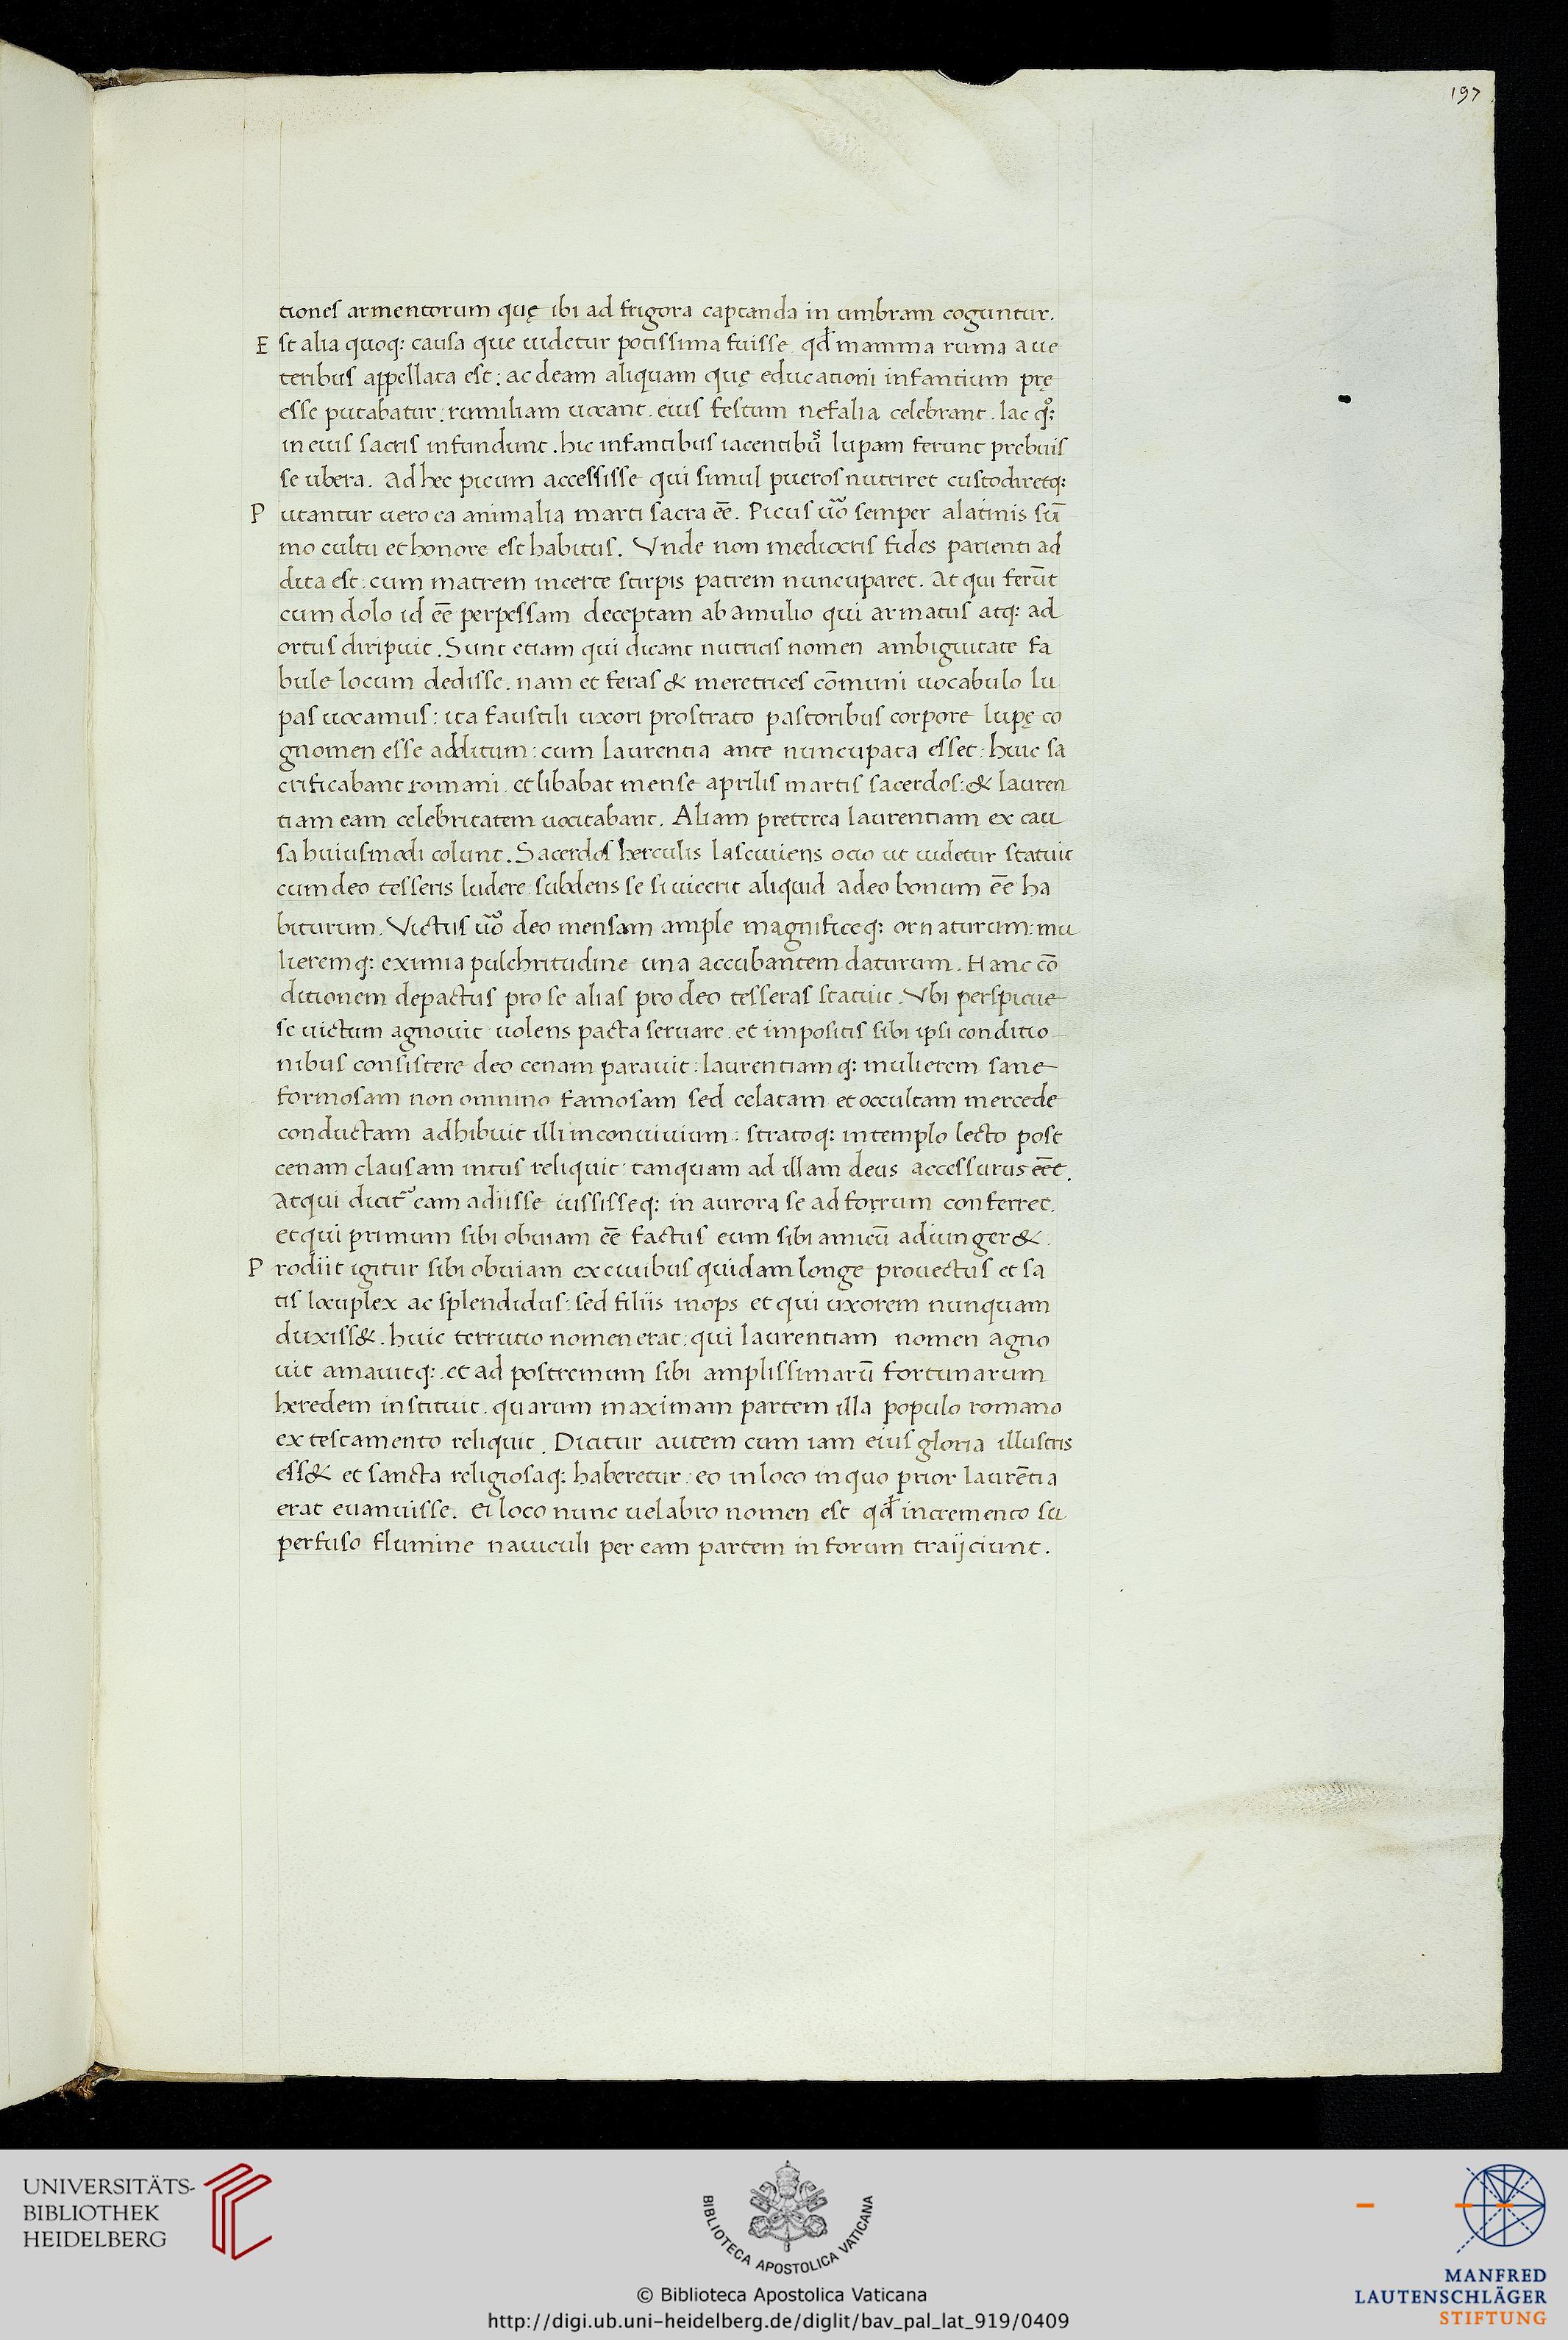 197
tiones armentorum quę ibi ad frigora captanda in umbram coguntur.
E st alia quoq: causa que uidetur potissima fuisse. qd̕ mamma ruma a ue
teribus appellata est: ac deam aliquam quę educationi infantium prę
esse putabatur: rumiliam uocant. eius festum nefalia celebrant. lac qͦ:
in eius sacris infundunt. hic infantibus iacentibus̉ lupam ferunt prebuis
se ubera. Ad hec picum accessisse qui simul pueros nutriret custodiretq:
P utantur uero ea animalia marti sacra eē. Picus uoᷓ semper alatinis sū
mo cultu et honore est habitus. Vnde non mediocris fides parienti ad
dita est: cum matrem incerte stirpis patrem nuncuparet. At qui ferūt
cum dolo id eē perpessam deceptam ab amulio qui armatus atq: ad
ortus diripuit. Sunt etiam qui dicant nutricis nomen ambiguitate fa
bule locum dedisse. nam et feras & meretrices cōmuni uocabulo lu
pas uocamus: ita faustili uxori prostrato pastoribus corpore lupę co
gnomen esse additum: cum laurentia ante nuncupata esset: huic sa
crificabant romani. et libabat mense aprilis martis sacerdos: & lauren
tiam eam celebritatem uocitabant. Aliam preterea laurentiam ex cau
sa huiusmodi colunt. Sacerdos herculis lasciuiens ocio ut uidetur statuit
cum deo tesseris ludere: subdens se si uicerit aliquid a deo bonum eē ha
biturum. Victus uoᷓ deo mensam ample magnificeq: ornaturum: mu
lieremq: eximia pulchritudine una accubantem daturum. Hanc cō
ditionem depactus pro se alias pro deo tesseras statuit. Vbi perspicue
se uictum agnouit uolens pacta seruare: et impositis sibi ipsi conditio
nibus consistere deo cenam parauit: laurentiamq: mulierem sane
formosam non omnino famosam sed celatam et occultam mercede
conductam adhibuit illi in conuiuium: stratoq: in templo lecto post
cenam clausam intus reliquit: tanquam ad illam deus accessurus eēt.
Atqui dicit᷑ eam adiisse iussisseq: in aurora se ad forrum conferret.
et qui primum sibi obuiam eē factus eum sibi amicū adiunger&.
P rodiit igitur sibi obuiam ex ciuibus quidam longe prouectus et sa
tis locuplex ac splendidus: sed filiis inops et qui uxorem nunquam
duxiss&. huic terrutio nomen erat: qui laurentiam nomen agno
uit amauitq: et ad postremum sibi amplissimarū fortunarum
heredem instituit. quarum maximam partem illa populo romano
ex testamento reliquit. Dicitur autem cum iam eius gloria illustris
ess& et sancta religiosaq: haberetur: eo in loco in quo prior laurētia
erat euanuisse. Ei loco nunc uelabro nomen est qd̕ incremento su
perfuso flumine nauiculi per eam partem in forum traijciunt.
UNIVERSITÄTS-
BIBLIOTHEK
HEIDELBERG
BIBLIOTECA APOSTOLICA VATICANA
© Biblioteca Apostolica Vaticana
http://digi.ub.uni-heidelberg.de/diglit/bav_pal_lat_919/0409
MANFRED
LAUTENSCHLÄGER
STIFTUNG